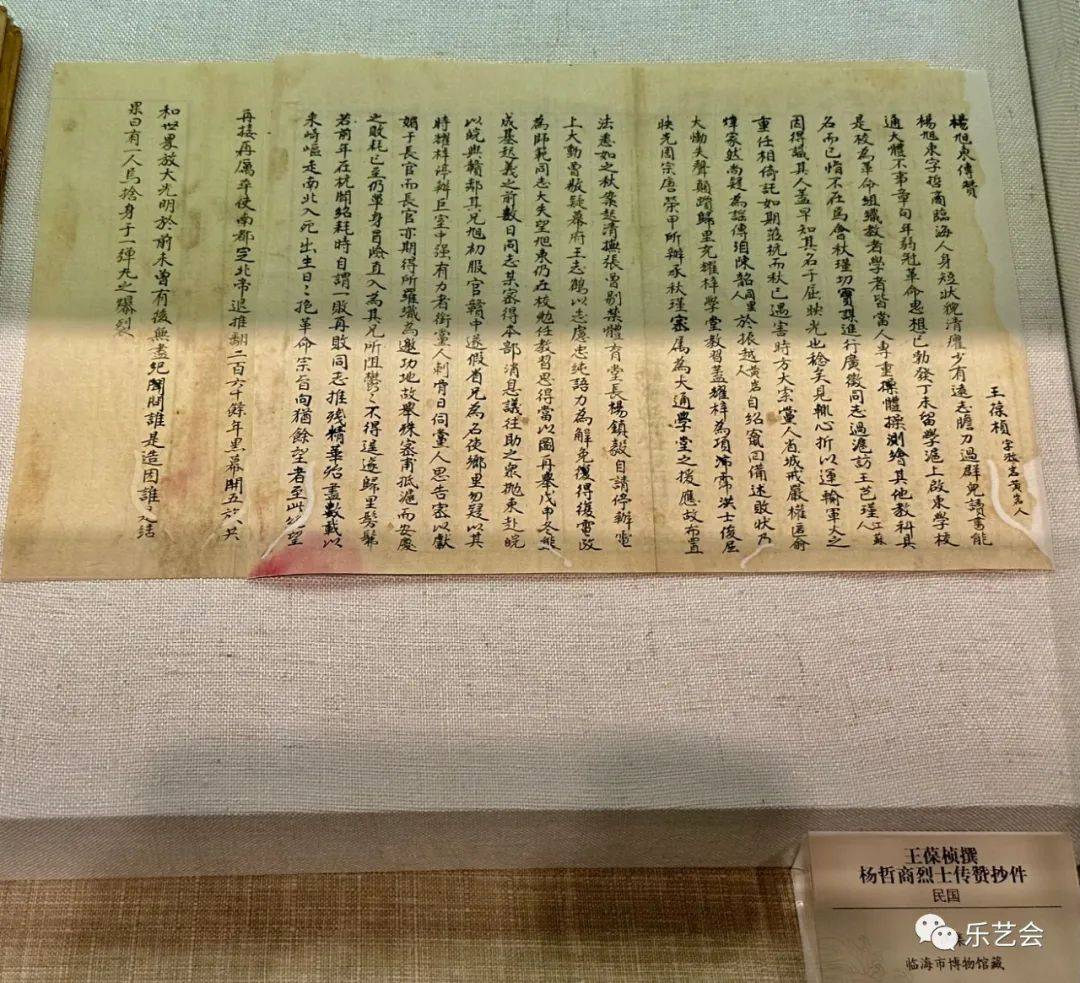 楊旭東傳贊
王葆楨字漱岩黃岩人
楊旭東字哲商臨海人身短狀貌清癯少有遠志膽力過群兒讀書能
通大體不事章句年弱冠革命思想已勃發丁未留學滬上啟東學校
是校為革命組織教者學者皆當人專重操體操測繪其他教科具
名而已惜不在焉會秋瑾切實謀進行廣徵同志過滬訪王芑瑾人江蘇
因得識其人蓋早知其名于屈映光也稔矣見輒心折以運輸軍火之
重任相倚託如期蒞杭而秋已遇害時方大索黨人省城戒嚴權匿俞
煒家然尚疑為謠傳洎陳韶人於振越人黃岩自紹竄回備述敗狀乃
大慟失聲顛躓歸里充耀梓學堂教習蓋耀梓為項霈霈洪士俊屈
映光周宗唐榮甲所辦承秋瑾密屬為大通學堂之援應故布置
法悉如之秋案起清撫張曾敭禁體育堂長楊鎮毅自請停辦電
上大動曾敭疑幕府王志鶴以志慮忠純語力為解免復得復電改
為師範同志大失望旭東仍在校勉任教習思得當以圖再舉戊申冬熊
成基起義之前數日同志某密得本部消息議往助之眾拋東赴皖
以皖與贛鄰其兄旭初服官贛中遂假省兄為名使鄉里勿疑以其
時耀梓停辦巨室中强有力者銜黨人刺骨日伺黨人思告密以獻
媚于長官而長官亦期得所羅織為邀功地故舉殊密甫抵滬而安慶
之敗耗已至仍單身冒險直入為其兄所阻鬱鬱不得逞遽歸里髣髴
若前年在杭聞紹耗時自謂一敗再敗同志摧殘精華殆盡數載以
來崎嶇走南北入死出生日日抱革命宗旨向猶餘望者至此絕望
再接再厲卒使南都定北帝退推翻二百六十餘年黑幕開五族共
和世界放大光明於前未曾有後無盡紀閒閒誰是造因誰是結
果曰有一人焉捨身于一彈丸之爆裂
王葆桢撰
杨哲商烈士传赞抄件
民国
乐艺会
临海市博物馆藏